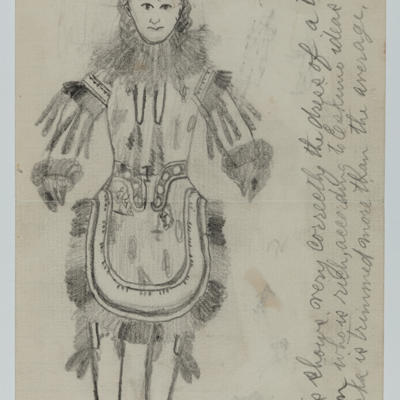 is shows very correctly the dress of a
who is rich, according to Eskimo ideas
she is trimmed more than the average,